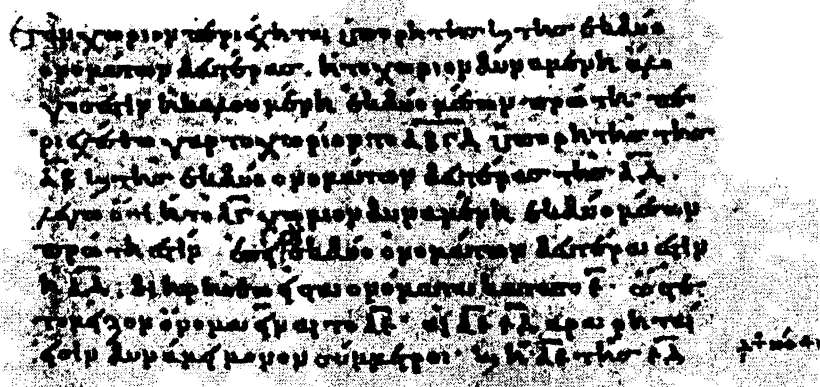 Ἐὰν χωρίον περιέχηται ὑπὸ ῥητῆς καὶ τῆς ἐκ δύο
ὀνομάτων δευτέρας, ἡ τὸ χωρίον δυναμένη ἄλο
γός ἐστιν ἡ καλουμένη ἐκ δύο μέσων πρώτη. πε
ριεχέσθω γὰρ τὸ χωρίον τὸ αβγδ ὑπὸ ῥητῆς τῆς
αβ καὶ τῆς ἐκ δύο ὀνομάτων δευτέρας τῆς αδ.
λέγω ὅτι ἡ τὸ αγ χωρίον δυναμένη ἐκ δύο μέσων
πρώτη ἐστίν ἐπεὶ γὰρ ἐκ δύο ὀνομάτων δευτέρα ἐστὶν
ἡ αδ. διῃρήσθω εἰς τὰ ὀνόματα κατὰ τὸ ε. ὥστε
τὸ μεῖζον ὄνομα εἶναι τὸ αε. αἱ αε εδ ἄρα ῥηταί
εἰσιν δυνάμει μόνον σύμμετροι. καὶ ἡ αε τῆς εδ